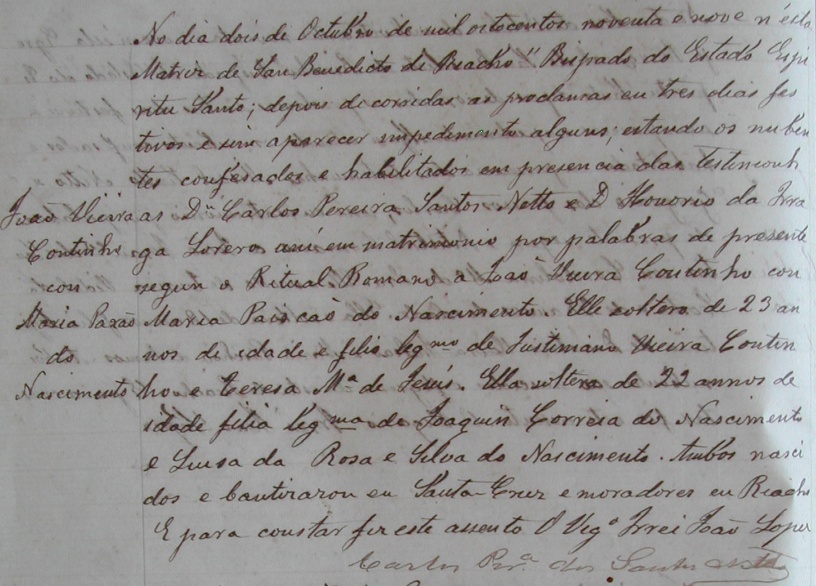 No dia dois de Octubro de mil oitocentos noventa e nove n'esta
Matriz de San Benedicto de Riacho" Bispado do Estado Espi
ritu Santo; depois de corridas as proclamas eu tres dias fes
tivos e sin aparecer impedimento alguns; estando os nuben
tes confesados e habilitados em presencia das testimonh
João Vieira Coutinho con Maria Paxão do Nascimento
as Dn Carlos Pereira Santos Netto e D Honorio da
ga Lorero uni em matrimonio por palabras de presente
segun o Ritual Romano a João Vieira Coutinho con
Maria Paiscaō do Nascimento. Elle soltero de 23 an
nos de idade e filio legmo de Justiniano Vieira Coutin
ho e Teresa Mª de Jesús. Ella soltera de 22 annos de
idade filia legma de Joaquin Correia do Nascimento
e Luisa da Rosa e Silva do Nascimento. Ambos nasci
dos e bautizaron eu Santa Cruz e moradores eu Riacho
E para constar fiz este assento O Vigº Frei João Lopez
Carlos Perª. dos Santos Netto